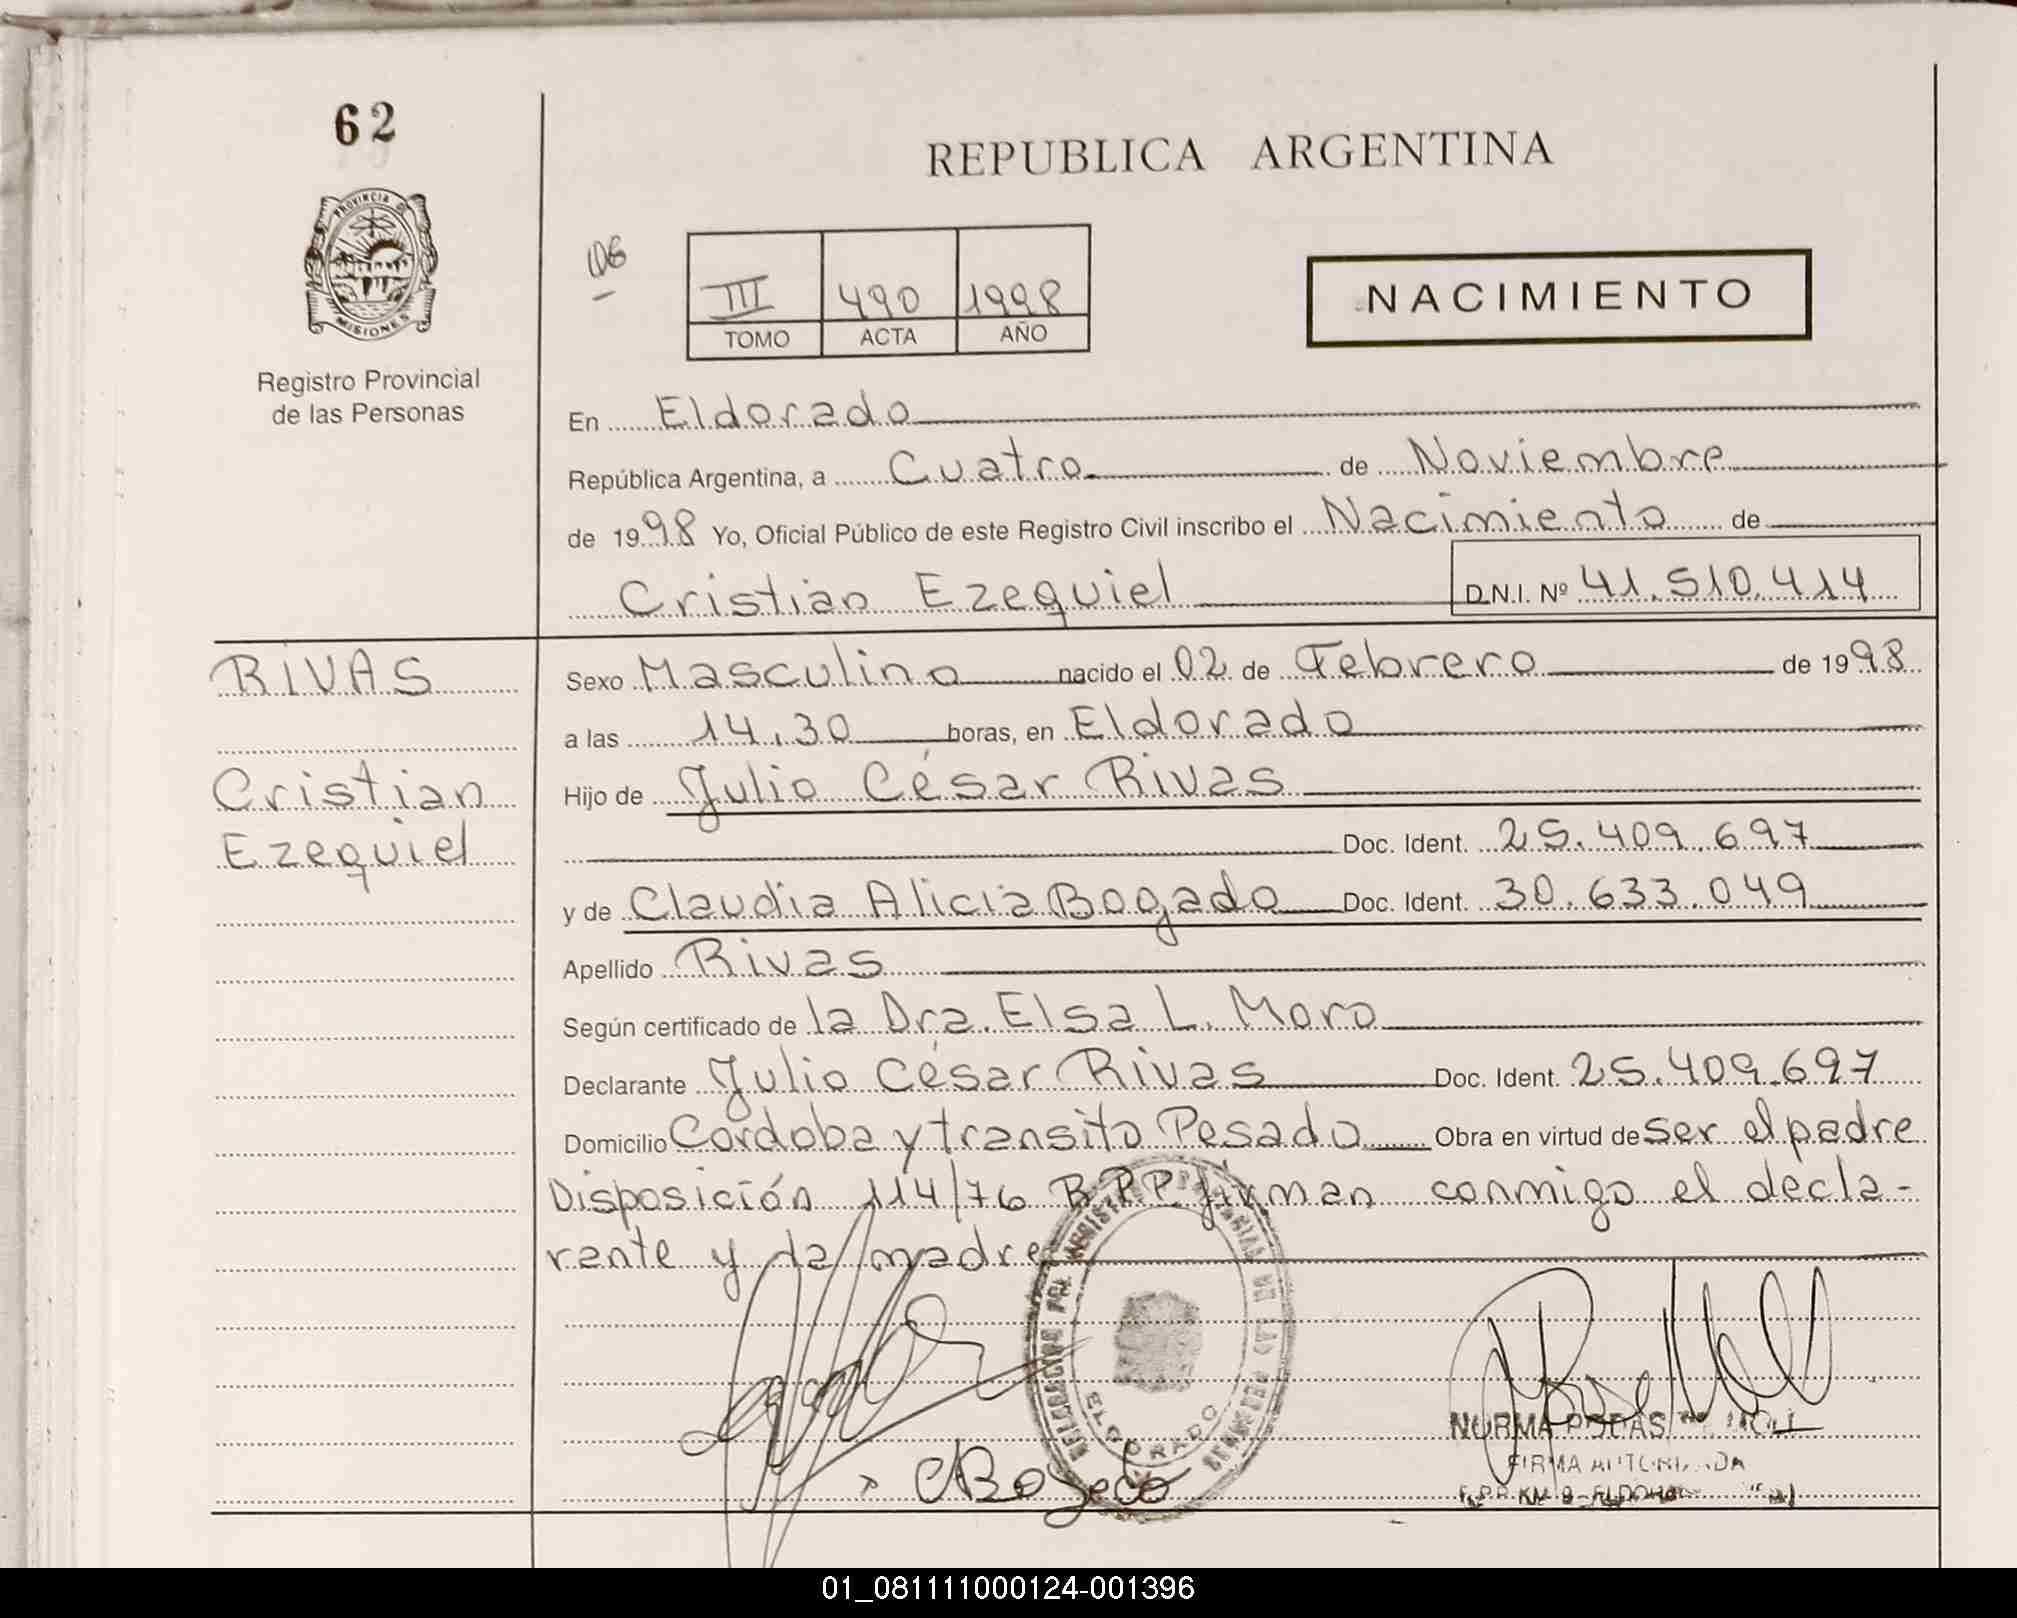 62
REPUBLICA ARGENTINA
PROVINCIA D
MISIONES
Registro Provincial
de las Personas
06
III 490 1998
TOMO ACTA AÑO
NACIMIENTO
En Eldorado
República Argentina, a Cuatro de Noviembre
de 1998 Yo, Oficial Público de este Registro Civil inscribo el Nacimiento de
Cristian Ezequiel D.N.I. Nº 41.510.414
RIVAS
Cristian
Ezequiel
Sexo Masculino nacido el 02 de Febrero de 1998
a las 14.30 horas, en Eldorado
Hijo de Julio César Rivas
Doc. Ident. 25.409.697
y de Claudia Alicia Bogado Doc. Ident. 30.633.049
Apellido Rivas
Según certificado de la Dra. Elsa L. Moro
Declarante Julio César Rivas Doc. Ident. 25.409.697
Domicilio Córdoba y transito Pesado Obra en virtud de ser el padre
Disposición 114/76 R.P.P. firman conmigo el decla-
rante y la madre
DELEGACION DEL REGISTRO PROVINCIAL DE LAS PERSONAS
ELDORADO
NORMA
FIRMA AUTORIZADA
R.P.P. KM 9 ELDORADO
01_081111000124-001396